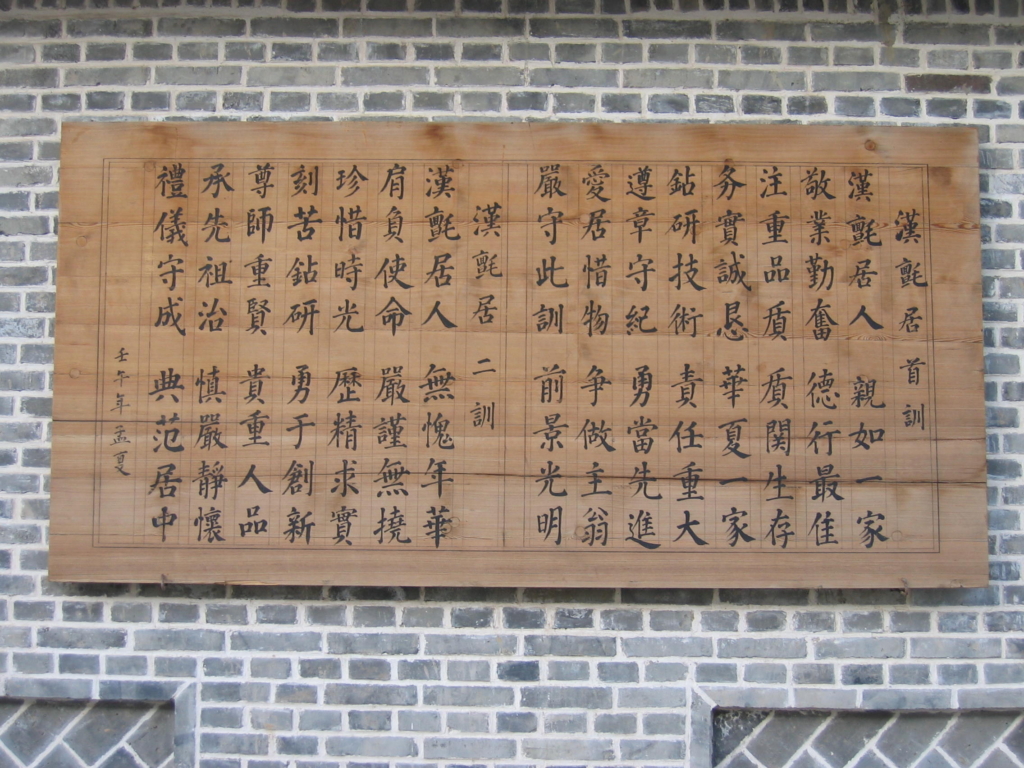 漢氈居 首訓
漢氈居人 親如一家
敬業勤奮 德行最佳
注重品质 质関生存
务實誠恳 華夏一家
鉆研技術 責任重大
遵章守紀 勇當先進
愛居惜物 争做主翁
嚴守此訓 前景光明
漢氈居 二訓
漢氈居人 無愧年華
肩負使命 嚴謹無撓
珍惜時光 歷精求實
刻苦鉆研 勇于創新
尊師重賢 貴重人品
承先祖治 慎嚴靜懷
禮儀守成 典范居中
壬午年孟夏